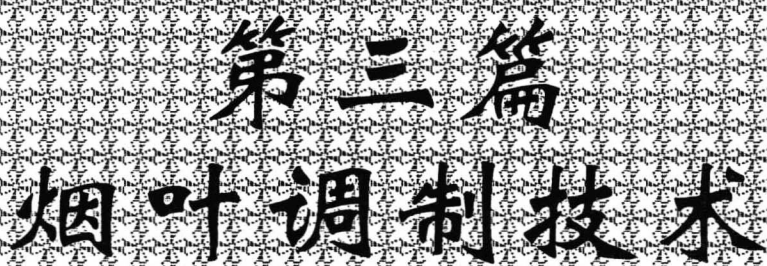 第三篇
烟叶调制技术